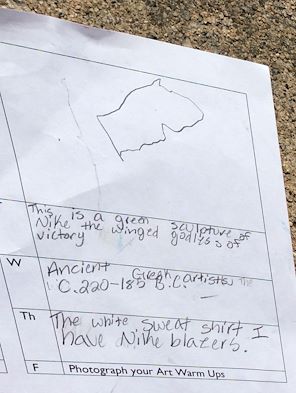 This is a green sculpture of
Nike the winged godess of
victory
W
Ancient Greek artists
C.220-185 B.C.
Th
The white sweat shirt I
have Nike blazers.
F
Photograph your Art Warm Ups